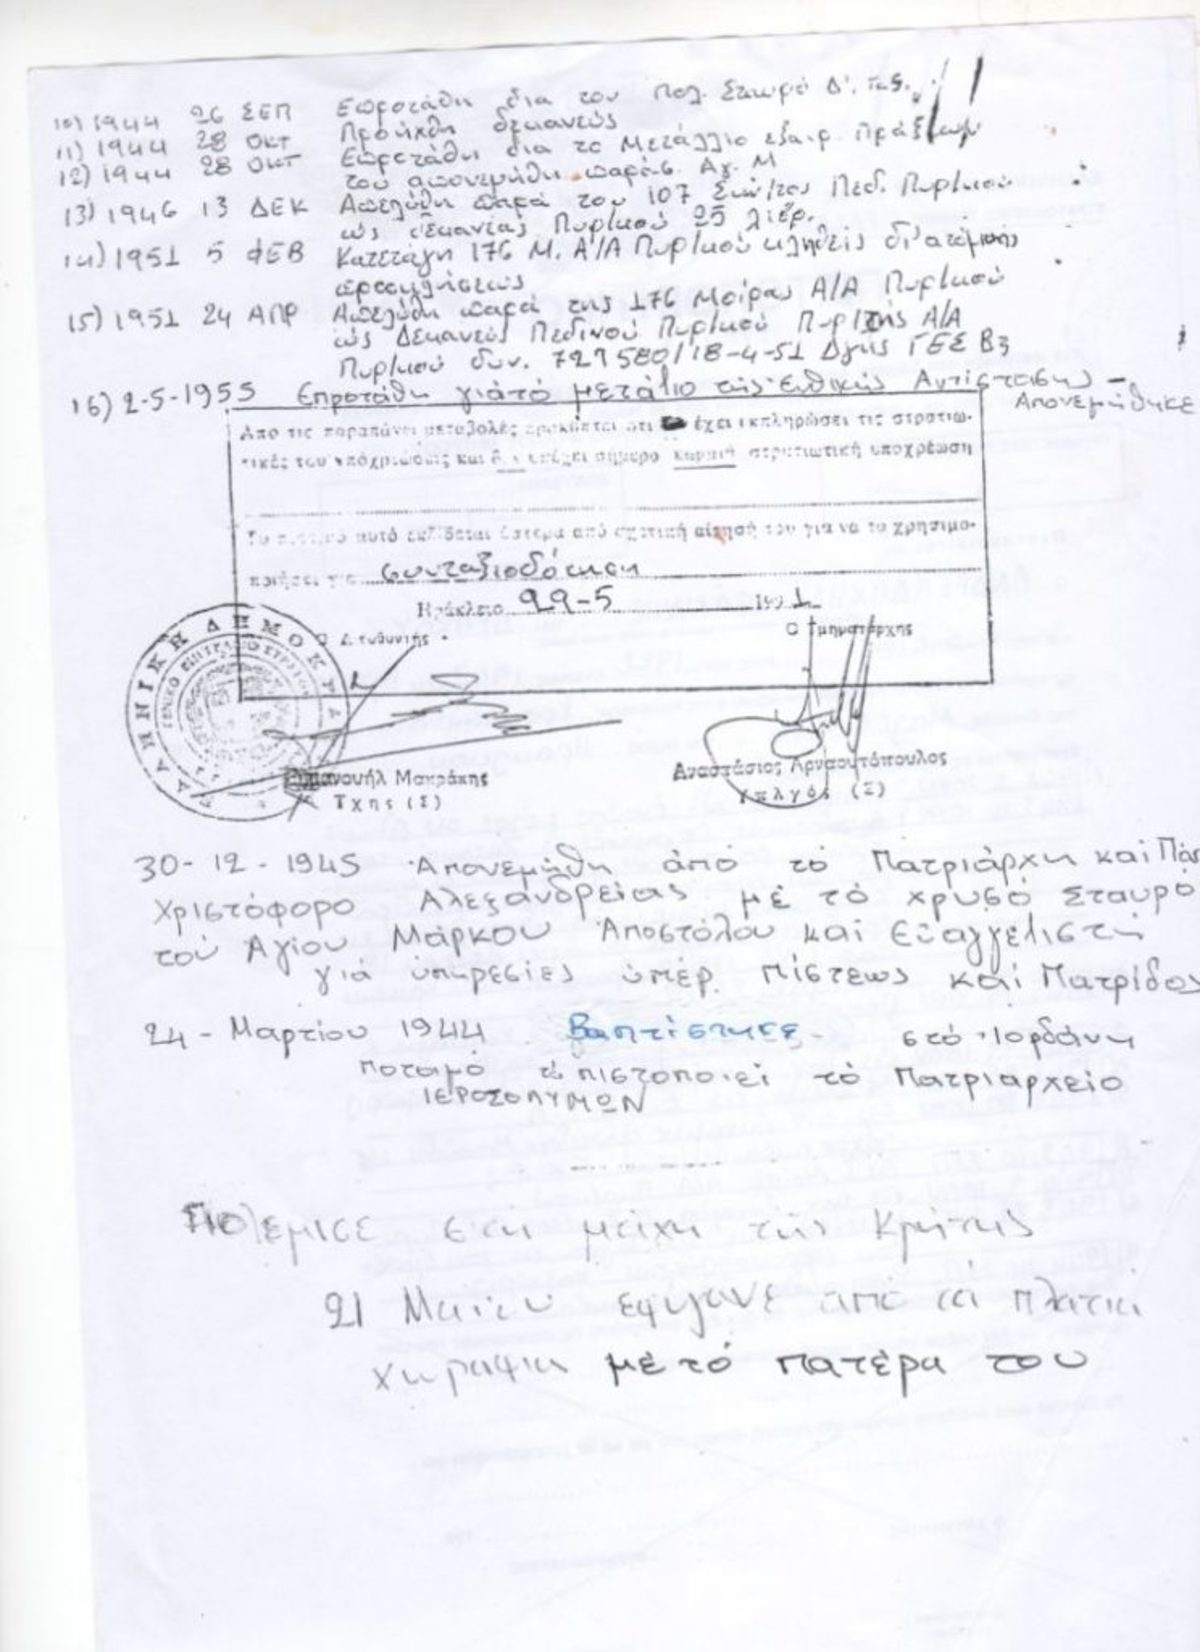 10) 1944 26 ΣΕΠ Επροτάθη δια τον Πολ. Σταυρό Δ' Τάξ.
11) 1944 28 ΟΚΤ Προήχθη δεκανεύς
12) 1944 28 ΟΚΤ Επροτάθη δια το Μετάλλιο εξαιρ. Πράξεων
του απονεμήθη παράσ. Αγ. Μ
13) 1946 13 ΔΕΚ Απελύθη παρά του 107 Συν/τος Πεδ. Πυρ/κού
ώς δεκανέας Πυρ/κού 25 λιβρ.
14) 1951 5 ΦΕΒ Κατετάγη 176 Μ. Α/Α Πυρ/κού κληθείς δι' ατομικής
προσκλήσεως
15) 1951 24 ΑΠΡ Απελύθη παρά της 176 Μοίρας Α/Α Πυρ/κού
ώς Δεκανεύς Πεδινού Πυρ/κού Πυρ/τής Α/Α
Πυρ/κού δυν. 727580/18-4-51 Δγής ΓΕΣ Β3
16) 2-5-1955 Επροτάθη γιά τό μετάλιο τής Εθικής Αντίστασης -
Απονεμήθηκε
Απο τις παραπάνω μεταβολές προκύπτει ότι έχει εκπληρώσει τις στρατιω-
τικές του υποχρεώσεις και δεν υπέχει σήμερα καμμιά στρατιωτική υποχρέωση
Το πιστ/κό αυτό εκδίδεται ύστερα από σχετική αίτησή του για να το χρησιμο-
ποιήσει για συνταξιοδότηση
Ηράκλειο 29-5 1991
Ο Διευθυντής Ο Τμηματάρχης
ΕΛΛΗΝΙΚΗ ΔΗΜΟΚΡΑΤΙΑ
Εμμανουήλ Μακράκης Αναστάσιος Αρναουτόπουλος
Τχης (Σ) Υπλγός (Σ)
30-12-1945 Απονεμήθη άπό τό Πατριάρχη καί Πάπ
Χριστόφορο Αλεξανδρείας μέ τό χρυσό Σταυρό
τού Αγίου Μάρκου Αποστόλου καί Εύαγγελιστή
γιά ύπηρεσίες ύπέρ Πίστεως καί Πατρίδος
24 - Μαρτίου 1944 Βαπτίστηκε στό Ιορδάνη
ποταμό τό πιστοποιεί τό Πατριαρχείο
ΙΕΡΟΣΟΛΥΜΩΝ
Πολέμισε στη μάχη τής Κρήτης
21 Μαΐου έφυγανε από τά πλατιά
χωράφια μέ τό πατέρα του